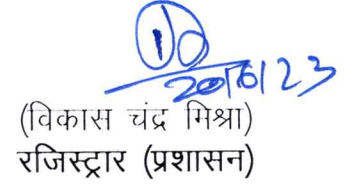 20/6/23
(विकास चंद्र मिश्रा)
रजिस्ट्रार (प्रशासन)